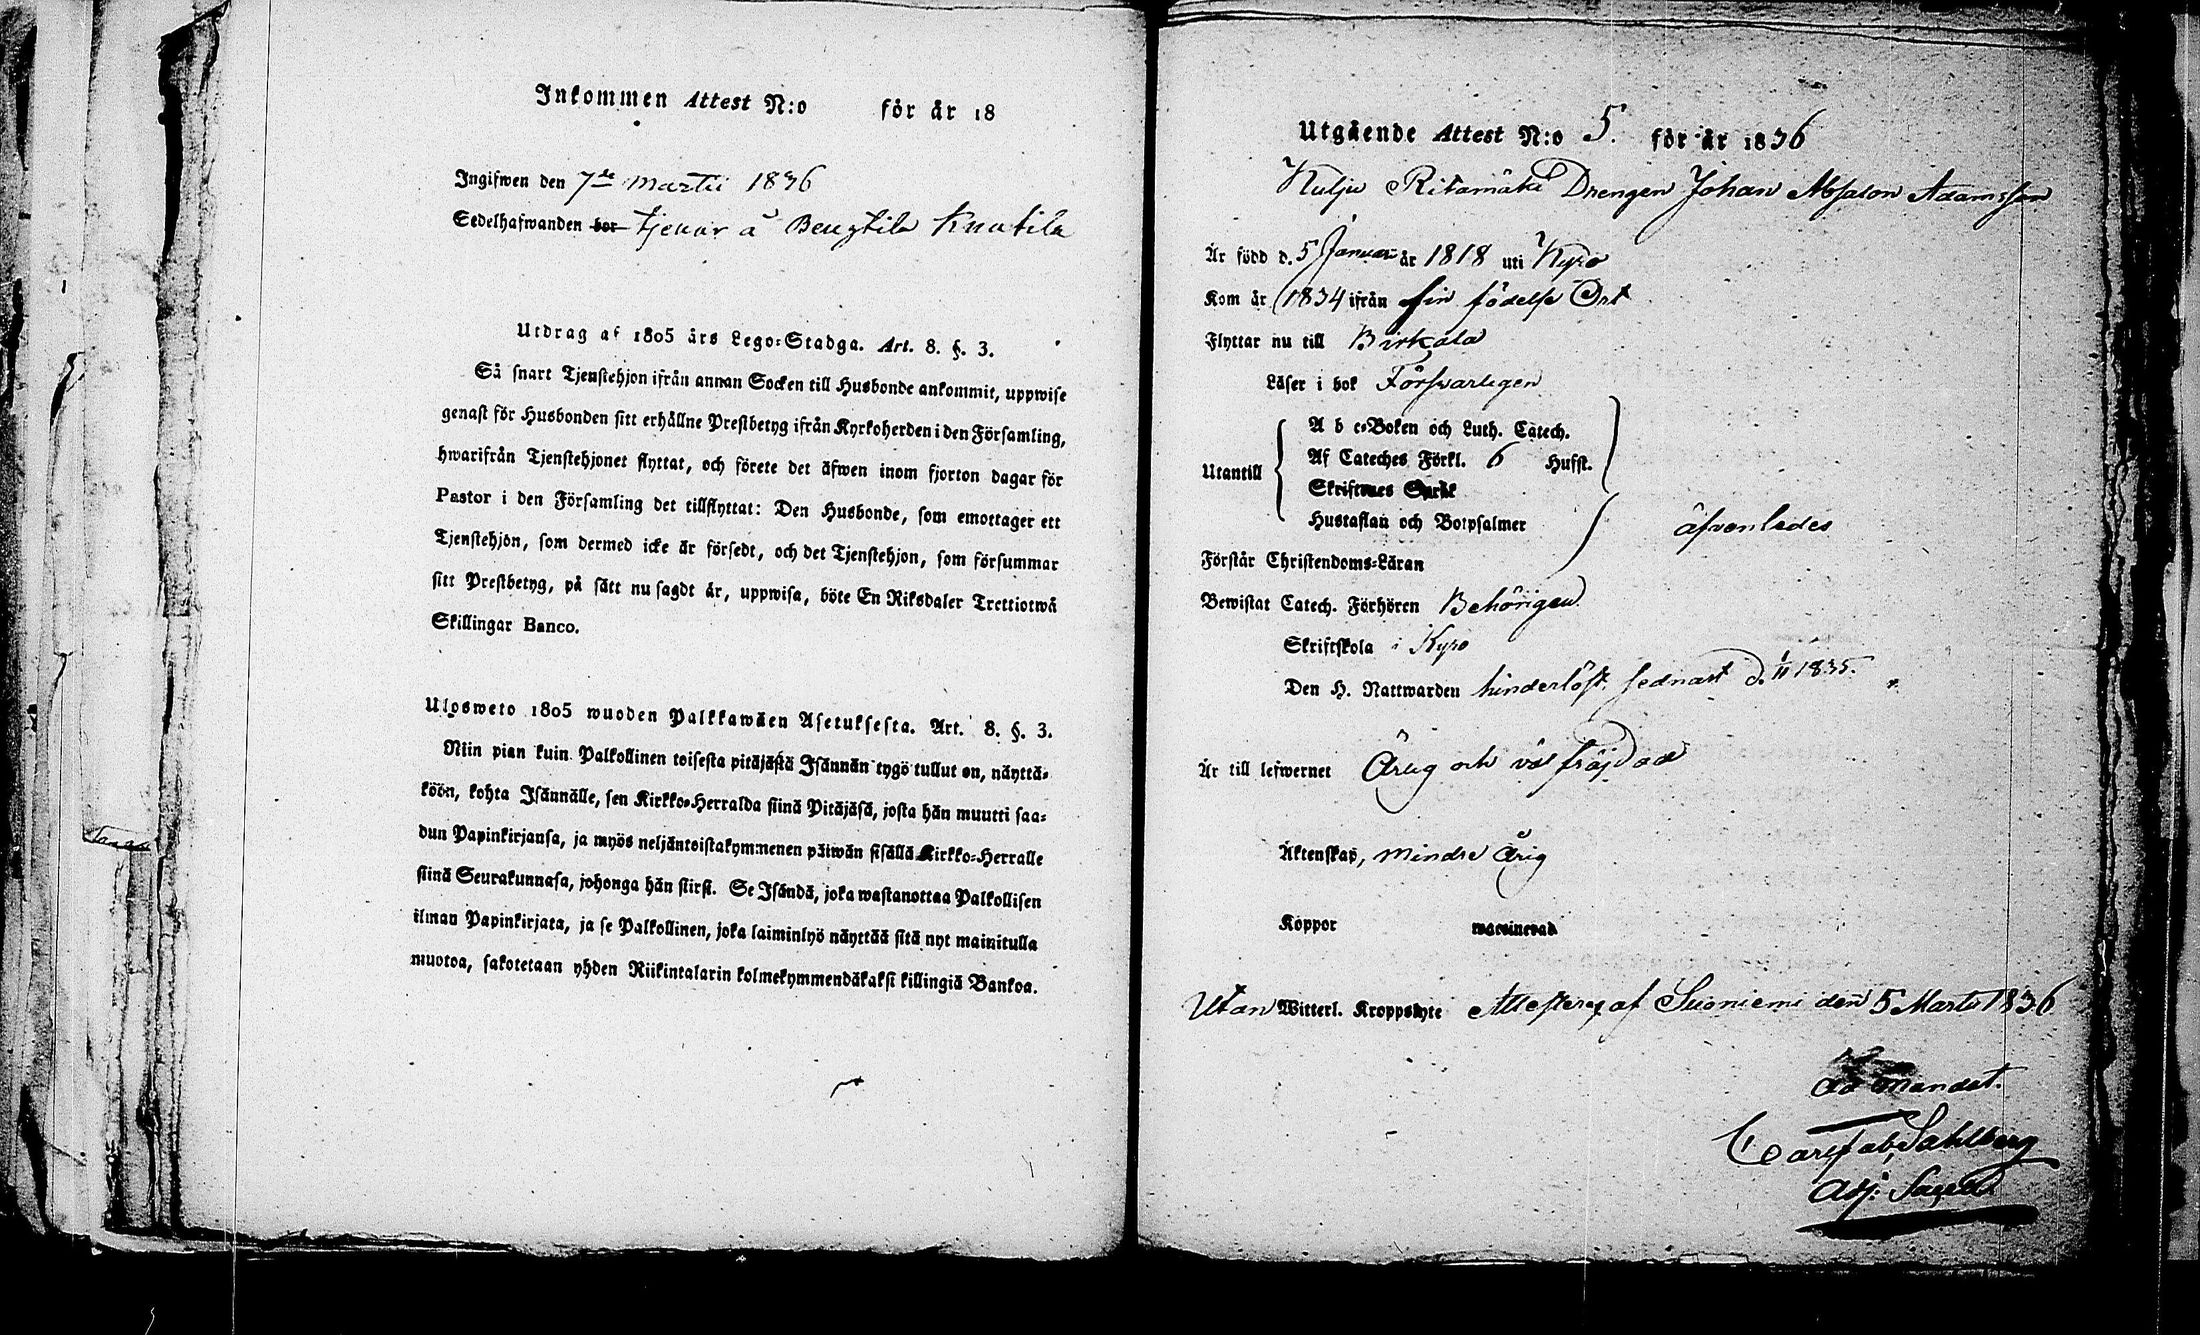 Inkommen Attest N:o för år 18
Ingifwen den 7de Martii 1836
Sedelhafwanden bor tjenar å Bengtila Knutila
Utdrag af 1805 års Lego-Stadga. Art. 8. §. 3.
Så snart Tjenstehjon ifrån annan Socken till Husbonde ankommit, uppwise
genast för Husbonden sitt erhållne Prestbetyg ifrån Kyrkoherden i den Församling,
hwarifrån Tjenstehjonet flyttat, och förete det äfwen inom fjorton dagar för
Pastor i den Församling det tillflyttat: Den Husbonde, som emottager ett
Tjenstehjon, som dermed icke är försedt, och det Tjenstehjon, som försummar
sitt Prestbetyg, på sätt nu sagdt är, uppwisa, böte En Riksdaler Trettiotwå
Skillingar Banco.
Ulosweto 1805 wuoden Palkkawäen Asetuksesta. Art. 8. §. 3.
Niin pian kuin Palkollinen toisesta pitäjästä Isännän tygö tullut on, näyttä-
köön, kohta Isännälle, sen Kirkko-Herralda siinä Pitäjäsä, josta hän muutti saa-
dun Papinkirjansa, ja myös neljäntoistakymmenen päiwän sisällä Kirkko-Herralle
siinä Seurakunnasa, johonga hän siirsi. Se Isändä, joka wastanottaa Palkollisen
ilman Papinkirjata, ja se Palkollinen, joka laiminlyö näyttää sitä nyt mainitulla
muotoa, sakotetaan yhden Riikintalarin kolmekymmendäkaksi killingiä Bankoa.
Utgående Attest N:o 5. för år 1836
Kulju Ritamäki Drengen Johan Absalon Adamsson
Är född d. 5 Januari år 1818 uti Kyro
Kom år 1834 ifrån sin födelse Ort
Flyttar nu till Birkala
Läser i bok Försvarligen
A b c-Boken och Luth. Catech.
Utantill Af Cateches Förkl. 6 Hufst.
Skriftenes Språk
Hustaflan och Botpsalmer äfvenledes
Förstår Christendoms-Läran
Bewistat Catech. Förhören Behörigen
Skriftskola i Kyro
Den H. Nattwarden hinderlöst, sednast d. 1/11 1835.
Är till lefwernet Ärlig och väl fräjdad
Äktenskap, mindre årig
Koppor waccinerad
Utan Witterl. Kroppslyte Attesteras af Suoniemi den 5 Martii 1836
ad mandat.
Sahlberg
Adj. Sacell.